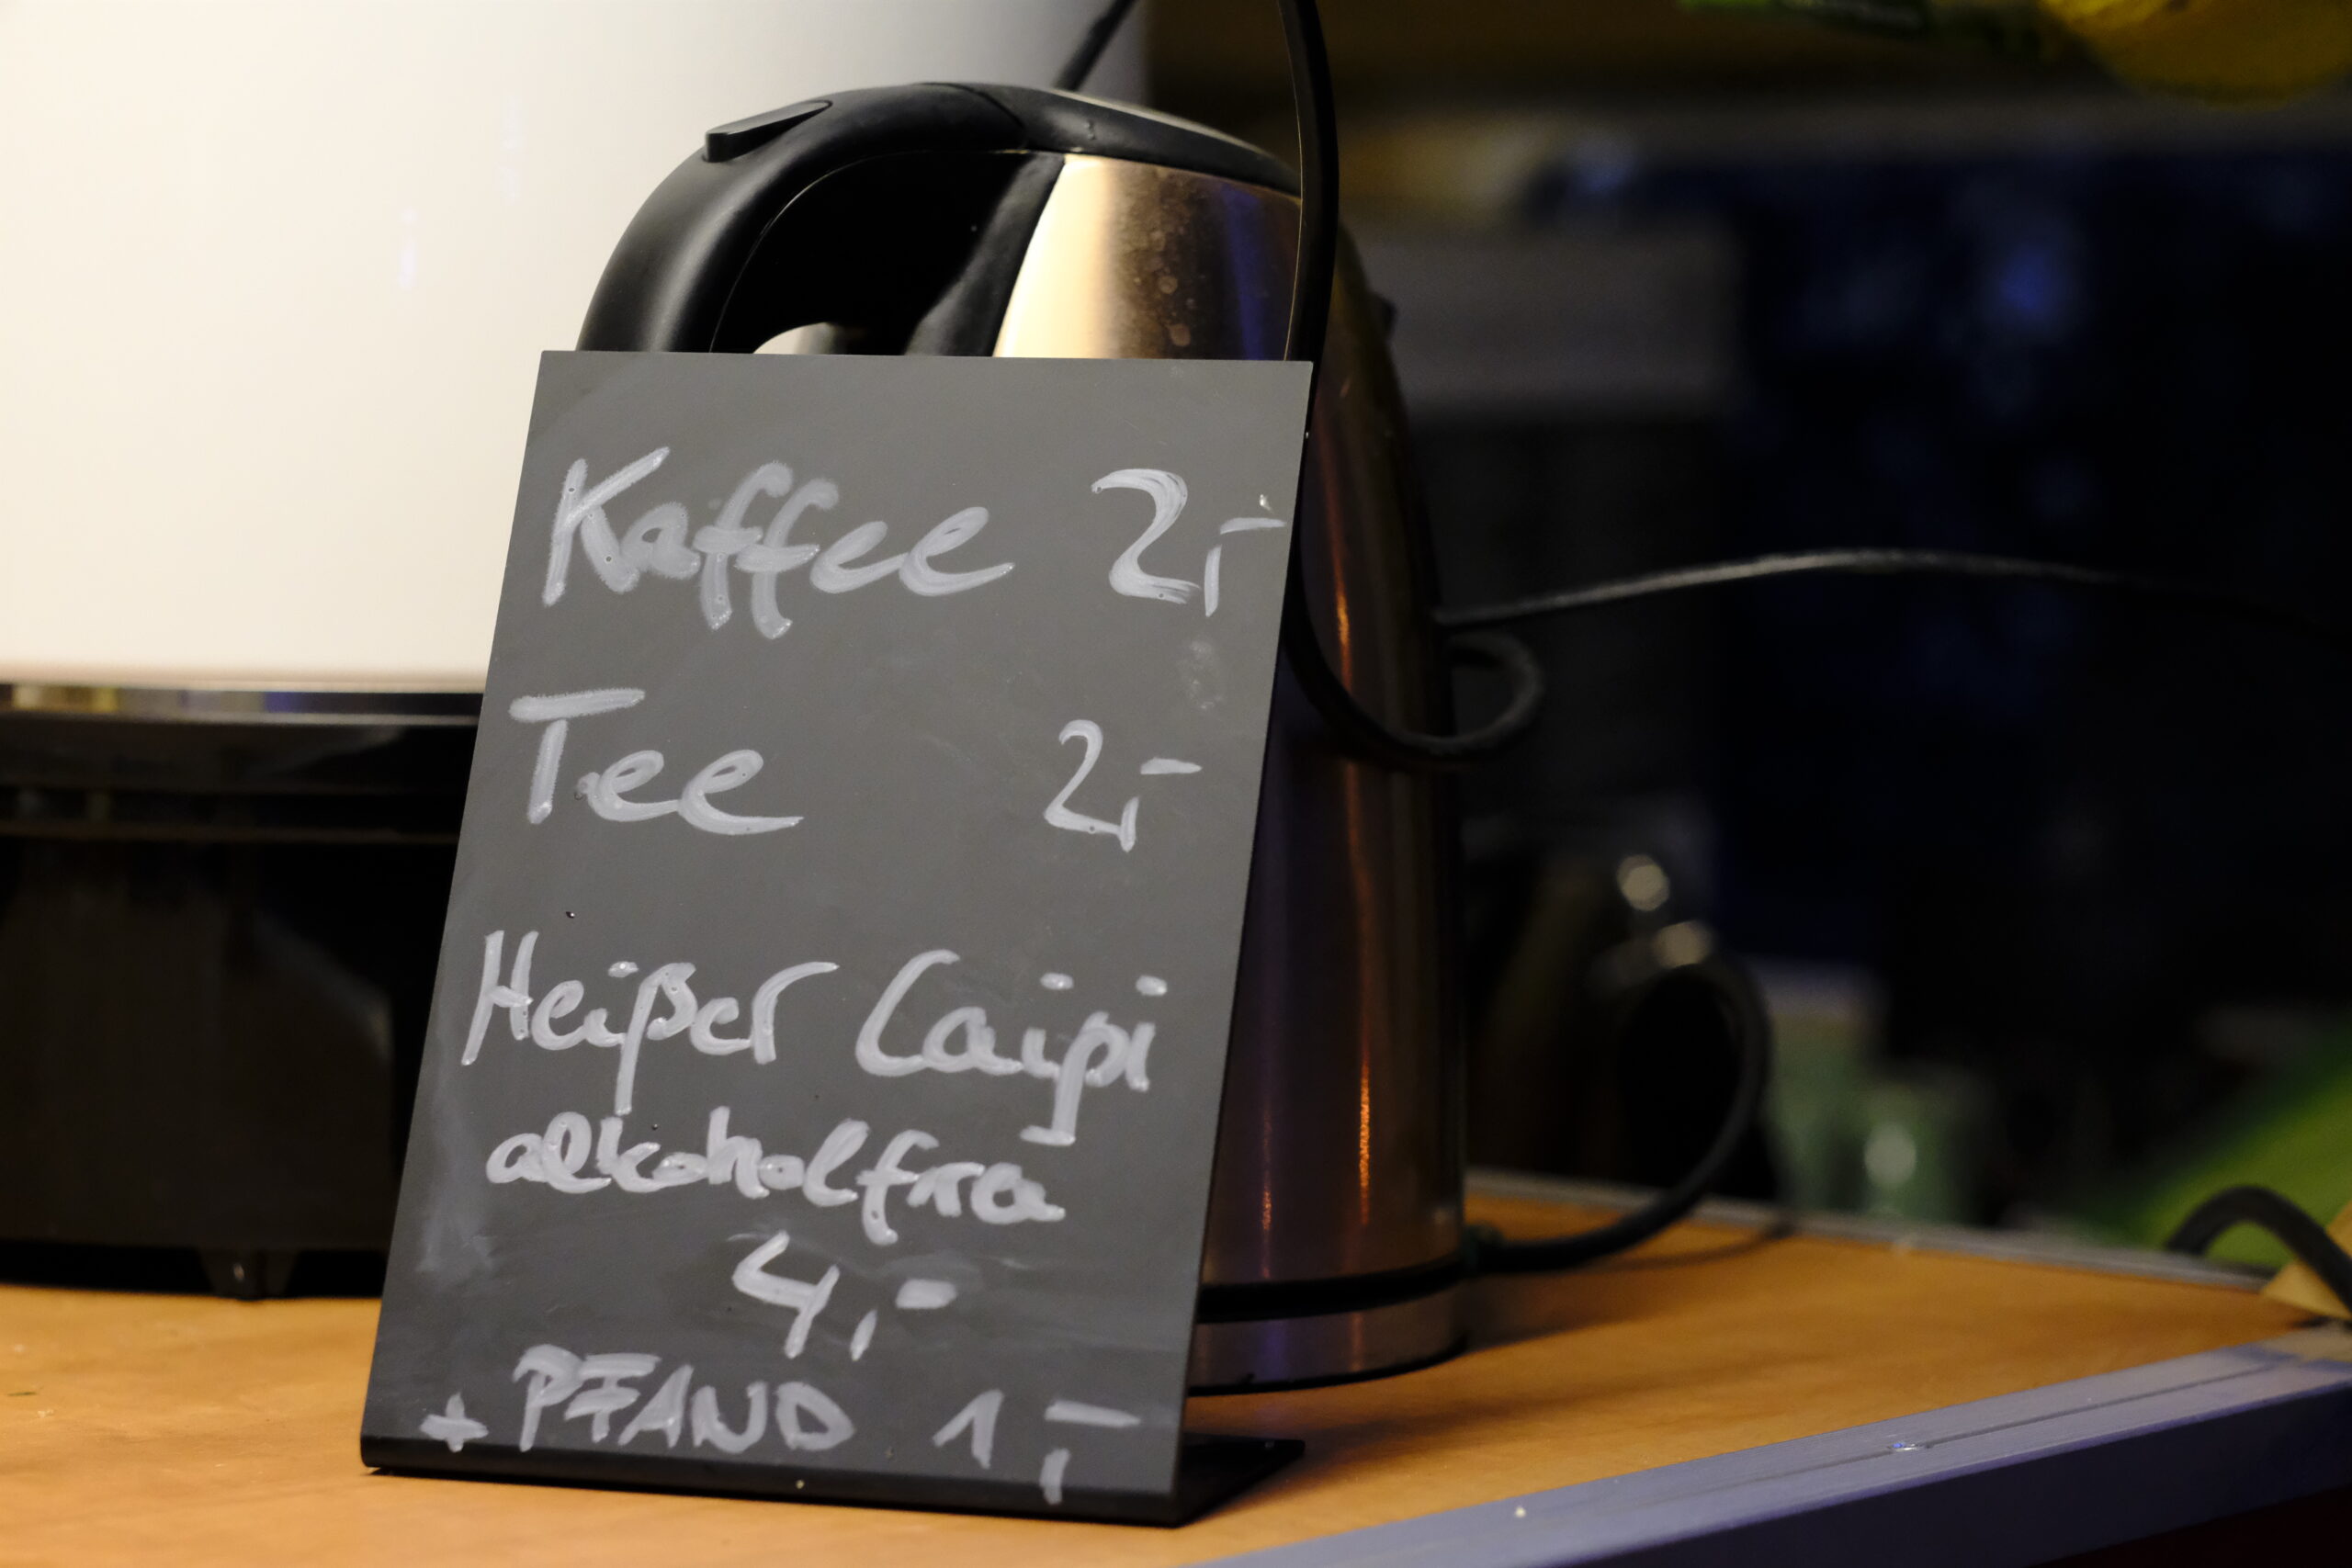 Kaffee 2,-
Tee 2,-
Heißer Caipi
alkoholfrei
4,-
+ PFAND 1,-